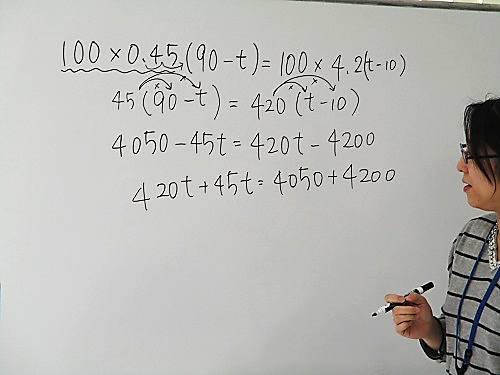 100 × 0.45 (90 - t) = 100 × 4.2(t-10)
45 (90 - t) = 420 (t - 10)
4050 - 45t = 420t - 4200
420t + 45t = 4050 + 4200